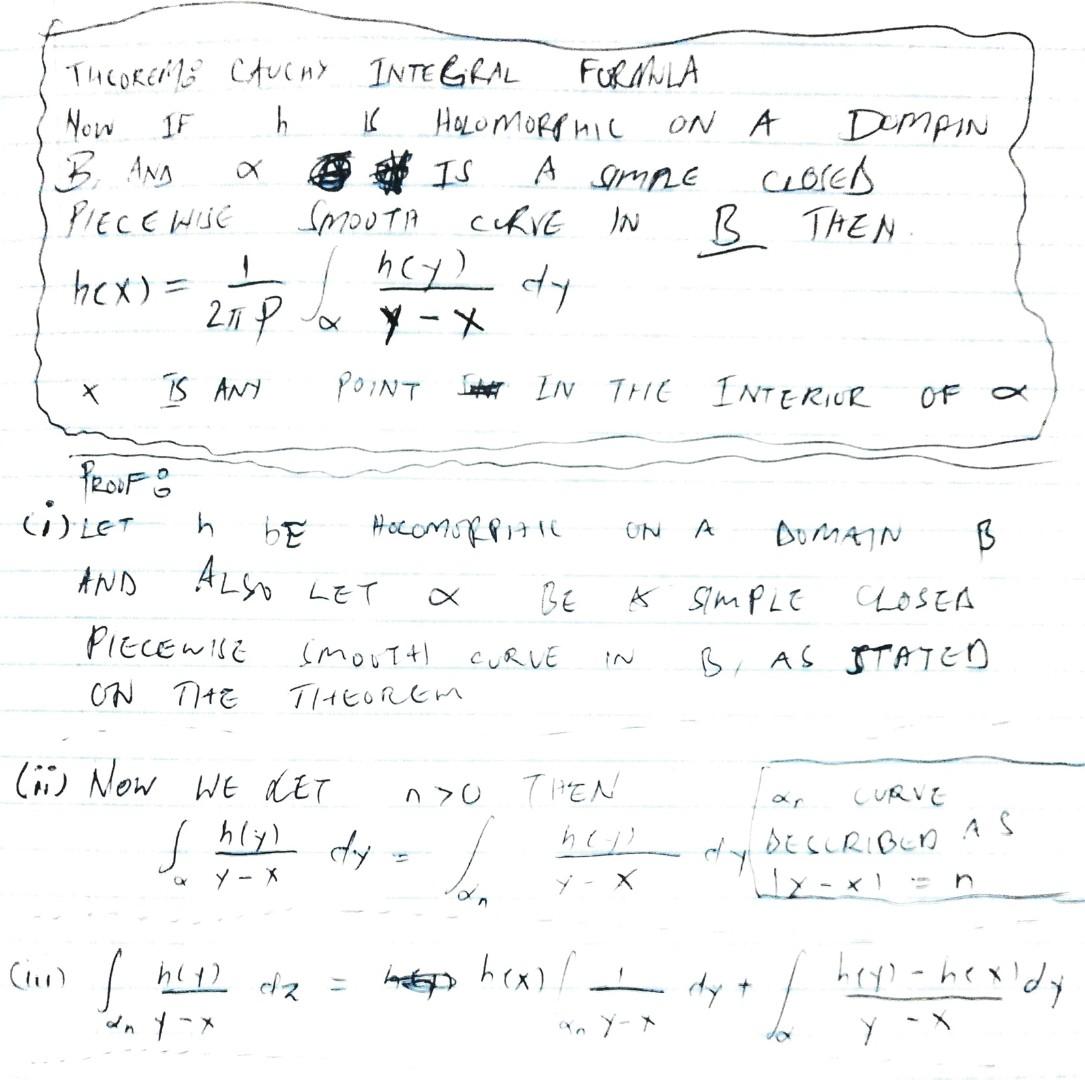 THEOREM: CAUCHY INTEGRAL FORMULA
NOW IF h IS HOLOMORPHIC ON A DOMAIN
B, AND α IS A SIMPLE CLOSED
PIECEWISE SMOOTH CURVE IN B THEN.
h(x) = \frac{1}{2πP} ∫_α \frac{h(y)}{y - x} dy
x IS ANY POINT IN THE INTERIOR OF α
PROOF:
(i) LET h bE HOLOMORPHIC ON A DOMAIN B
AND ALSO LET α BE A SIMPLE CLOSED
PIECEWISE SMOOTH CURVE IN B, AS STATED
ON THE THEOREM
(ii) NOW WE LET n>0 THEN
∫_α \frac{h(y)}{y - x} dy = ∫_{α_n} \frac{h(y)}{y - x} dy
α_n CURVE
DESCRIBED AS
|y - x| = n
(iii) ∫_{α_n} \frac{h(y)}{y - x} dz = h(x) ∫_{α_n} \frac{1}{y - x} dy + ∫_α \frac{h(y) - h(x)}{y - x} dy